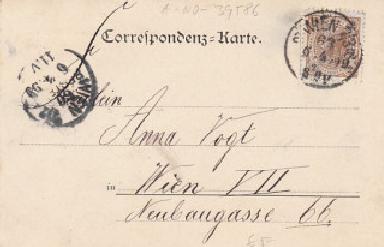 A-ND-39F86
Correspondenz-Karte.
WIEN
Fräulein
Anna Vogt
in Wien VII
Neubaugasse 66.